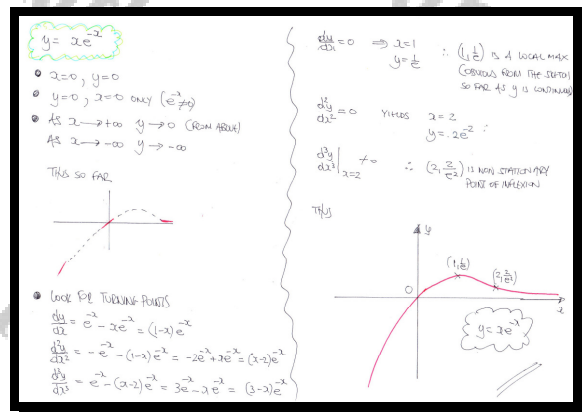 y = xe^{-x}
• x=0, y=0
• y=0, x=0 ONLY (e^{-x}≠0)
• AS x→+∞ y→0 (FROM ABOVE)
AS x→-∞ y→-∞
THUS SO FAR
• LOOK FOR TURNING POINTS
dy/dx = e^{-x} - xe^{-x} = (1-x)e^{-x}
d²y/dx² = -e^{-x} - (1-x)e^{-x} = -2e^{-x} + xe^{-x} = (x-2)e^{-x}
d³y/dx³ = e^{-x} - (x-2)e^{-x} = 3e^{-x} - xe^{-x} = (3-x)e^{-x}
dy/dx = 0 ⇒ x=1
y=1/e ∴ (1,1/e) IS A LOCAL MAX
(OBVIOUS FROM THE SKETCH
SO FAR AS y IS CONTINUOUS)
d²y/dx² = 0 YIELDS x = 2
y = 2e^{-2}
d³y/dx³|_{x=2} ≠ 0 ∴ (2,2/e²) IS NON STATIONARY
POINT OF INFLEXION
THUS
y
(1,1/e)
(2,2/e²)
O
x
y = xe^{-x}